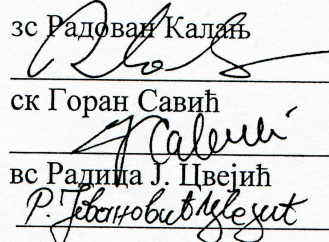 зс Радован Калањ
ск Горан Савић
Г Савић
вс Радица Ј. Цвејић
Р. Јовановић Цвејић